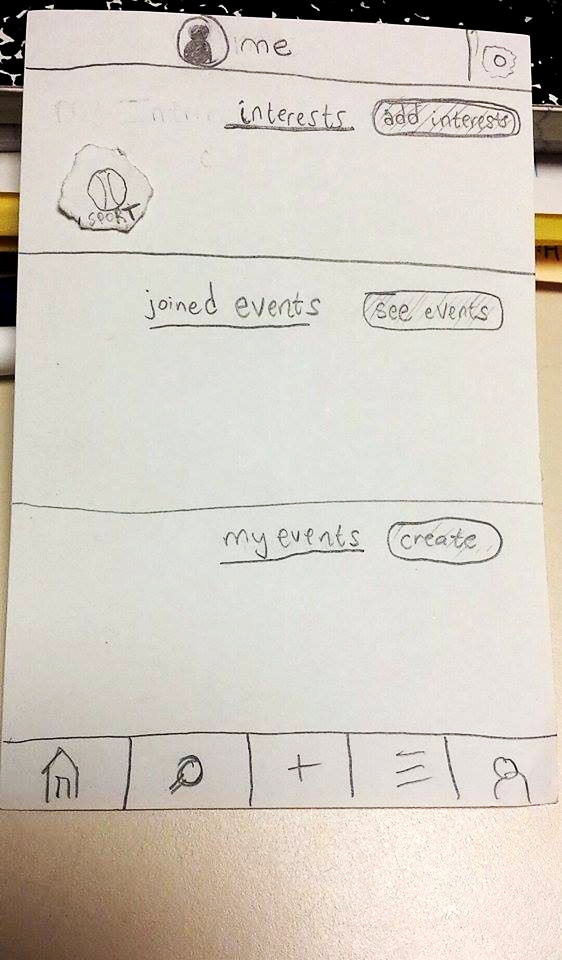 me
interests add interests
SPORT
joined events see events
my events create